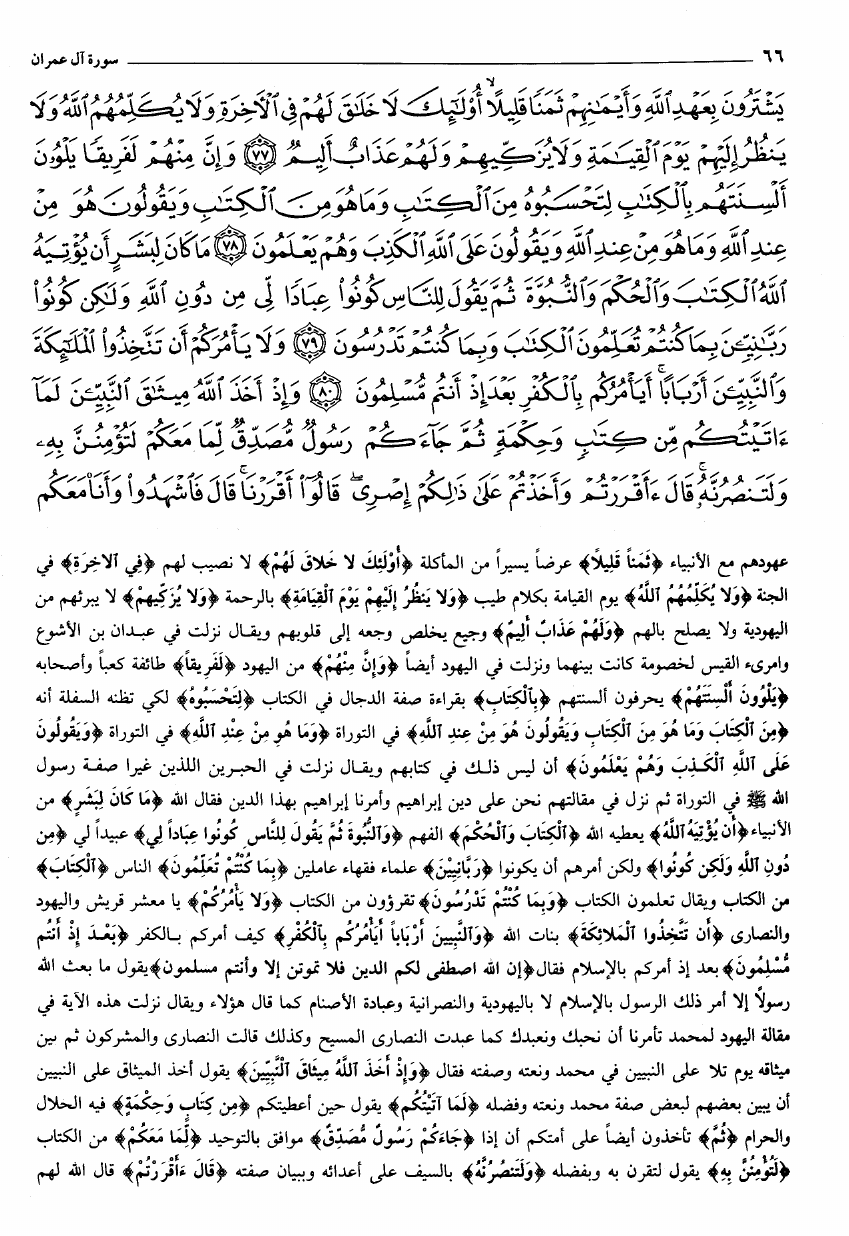 ٦٦ سورة آل عمران
يَشْتَرُونَ بِعَهْدِ ٱللَّهِ وَأَيْمَٰنِهِمْ ثَمَنًا قَلِيلًا أُو۟لَٰٓئِكَ لَا خَلَٰقَ لَهُمْ فِى ٱلْءَاخِرَةِ وَلَا يُكَلِّمُهُمُ ٱللَّهُ وَلَا
يَنظُرُ إِلَيْهِمْ يَوْمَ ٱلْقِيَٰمَةِ وَلَا يُزَكِّيهِمْ وَلَهُمْ عَذَابٌ أَلِيمٌ ﴿٧٧﴾ وَإِنَّ مِنْهُمْ لَفَرِيقًا يَلْوُۥنَ
أَلْسِنَتَهُم بِٱلْكِتَٰبِ لِتَحْسَبُوهُ مِنَ ٱلْكِتَٰبِ وَمَا هُوَ مِنَ ٱلْكِتَٰبِ وَيَقُولُونَ هُوَ مِنْ
عِندِ ٱللَّهِ وَمَا هُوَ مِنْ عِندِ ٱللَّهِ وَيَقُولُونَ عَلَى ٱللَّهِ ٱلْكَذِبَ وَهُمْ يَعْلَمُونَ ﴿٧٨﴾ مَا كَانَ لِبَشَرٍ أَن يُؤْتِيَهُ
ٱللَّهُ ٱلْكِتَٰبَ وَٱلْحُكْمَ وَٱلنُّبُوَّةَ ثُمَّ يَقُولَ لِلنَّاسِ كُونُوا۟ عِبَادًا لِّى مِن دُونِ ٱللَّهِ وَلَٰكِن كُونُوا۟
رَبَّٰنِيِّۦنَ بِمَا كُنتُمْ تُعَلِّمُونَ ٱلْكِتَٰبَ وَبِمَا كُنتُمْ تَدْرُسُونَ ﴿٧٩﴾ وَلَا يَأْمُرَكُمْ أَن تَتَّخِذُوا۟ ٱلْمَلَٰٓئِكَةَ
وَٱلنَّبِيِّۦنَ أَرْبَابًا أَيَأْمُرُكُم بِٱلْكُفْرِ بَعْدَ إِذْ أَنتُم مُّسْلِمُونَ ﴿٨٠﴾ وَإِذْ أَخَذَ ٱللَّهُ مِيثَٰقَ ٱلنَّبِيِّۦنَ لَمَآ
ءَاتَيْتُكُم مِّن كِتَٰبٍ وَحِكْمَةٍ ثُمَّ جَآءَكُمْ رَسُولٌ مُّصَدِّقٌ لِّمَا مَعَكُمْ لَتُؤْمِنُنَّ بِهِۦ
وَلَتَنصُرُنَّهُۥ قَالَ ءَأَقْرَرْتُمْ وَأَخَذْتُمْ عَلَىٰ ذَٰلِكُمْ إِصْرِى قَالُوٓا۟ أَقْرَرْنَا قَالَ فَٱشْهَدُوا۟ وَأَنَا۠ مَعَكُم
عهودهم مع الأنبياء ﴿ثَمَناً قَلِيلاً﴾ عرضاً يسيراً من المأكلة ﴿أُوْلَئِكَ لا خَلاقَ لَهُمْ﴾ لا نصيب لهم ﴿فِي ٱلآخِرَةِ﴾ في
الجنة ﴿وَلا يُكَلِّمُهُمُ ٱللَّهُ﴾ يوم القيامة بكلام طيب ﴿وَلا يَنظُرُ إِلَيْهِمْ يَوْمَ ٱلْقِيَامَةِ﴾ بالرحمة ﴿وَلا يُزَكِّيهِمْ﴾ لا يبرئهم من
اليهودية ولا يصلح بالهم ﴿وَلَهُمْ عَذَابٌ أَلِيمٌ﴾ وجيع يخلص وجعه إلى قلوبهم ويقال نزلت في عبدان بن الأشوع
وامرىء القيس لخصومة كانت بينهما ونزلت في اليهود أيضاً ﴿وَإِنَّ مِنْهُمْ﴾ من اليهود ﴿لَفَرِيقاً﴾ طائفة كعباً وأصحابه
﴿يَلْوُونَ أَلْسِنَتَهُمْ﴾ يحرفون ألسنتهم ﴿بِٱلْكِتَابِ﴾ بقراءة صفة الدجال في الكتاب ﴿لِتَحْسَبُوهُ﴾ لكي تظنه السفلة أنه
﴿مِنَ ٱلْكِتَابِ وَمَا هُوَ مِنَ ٱلْكِتَابِ وَيَقُولُونَ هُوَ مِنْ عِندِ ٱللَّهِ﴾ في التوراة ﴿وَمَا هُو مِنْ عِندِ ٱللَّهِ﴾ في التوراة ﴿وَيَقُولُونَ
عَلَى ٱللَّهِ ٱلْكَذِبَ وَهُمْ يَعْلَمُونَ﴾ أن ليس ذلك في كتابهم ويقال نزلت في الحبرين اللذين غيرا صفة رسول
الله ﷺ في التوراة ثم نزل في مقالتهم نحن على دين إبراهيم وأمرنا إبراهيم بهذا الدين فقال الله ﴿مَا كَانَ لِبَشَرٍ﴾ من
الأنبياء ﴿أَن يُؤْتِيَهُ ٱللَّهُ﴾ يعطيه الله ﴿ٱلْكِتَابَ وَٱلْحُكْمَ﴾ الفهم ﴿وَٱلنُّبُوةَ ثُمَّ يَقُولَ لِلنَّاسِ كُونُوا عِبَاداً لِي﴾ عبيداً لي ﴿مِن
دُونِ ٱللَّهِ وَلَكِن كُونُوا﴾ ولكن أمرهم أن يكونوا ﴿رَبَّانِيِّيْنَ﴾ علماء فقهاء عاملين ﴿بِمَا كُنْتُمْ تُعَلِّمُونَ﴾ الناس ﴿ٱلْكِتَابَ﴾
من الكتاب ويقال تعلمون الكتاب ﴿وَبِمَا كُنْتُمْ تَدْرُسُونَ﴾ تقرؤون من الكتاب ﴿وَلا يَأْمُرُكُمْ﴾ يا معشر قريش واليهود
والنصارى ﴿أَن تَتَّخِذُوا ٱلْمَلائِكَةَ﴾ بنات الله ﴿وَٱلنَّبِيينَ أَرْبَاباً أَيَأْمُرُكُم بِٱلْكُفْرِ﴾ كيف أمركم بالكفر ﴿بَعْدَ إِذْ أَنتُم
مُّسْلِمُونَ﴾ بعد إذ أمركم بالإسلام فقال ﴿إن الله اصطفى لكم الدين فلا تموتن إلا وأنتم مسلمون﴾ يقول ما بعث الله
رسولاً إلا أمر ذلك الرسول بالإسلام لا باليهودية والنصرانية وعبادة الأصنام كما قال هؤلاء ويقال نزلت هذه الآية في
مقالة اليهود لمحمد تأمرنا أن نحبك ونعبدك كما عبدت النصارى المسيح وكذلك قالت النصارى والمشركون ثم بين
ميثاقه يوم تلا على النبيين في محمد ونعته وصفته فقال ﴿وَإِذْ أَخَذَ ٱللَّهُ مِيثَاقَ ٱلنَّبِيِّينَ﴾ يقول أخذ الميثاق على النبيين
أن يبين بعضهم لبعض صفة محمد ونعته وفضله ﴿لَمَا آتَيْتُكُم﴾ يقول حين أعطيتكم ﴿مِن كِتَابٍ وَحِكْمَةٍ﴾ فيه الحلال
والحرام ﴿ثُمَّ﴾ تأخذون أيضاً على أمتكم أن إذا ﴿جَاءَكُمْ رَسُولٌ مُّصَدِّقٌ﴾ موافق بالتوحيد ﴿لِّمَا مَعَكُمْ﴾ من الكتاب
﴿لَتُؤْمِنُنَّ بِهِ﴾ يقول لتقرن به وبفضله ﴿وَلَتَنصُرُنَّهُ﴾ بالسيف على أعدائه وببيان صفته ﴿قَالَ ءَأَقْرَرْتُمْ﴾ قال الله لهم